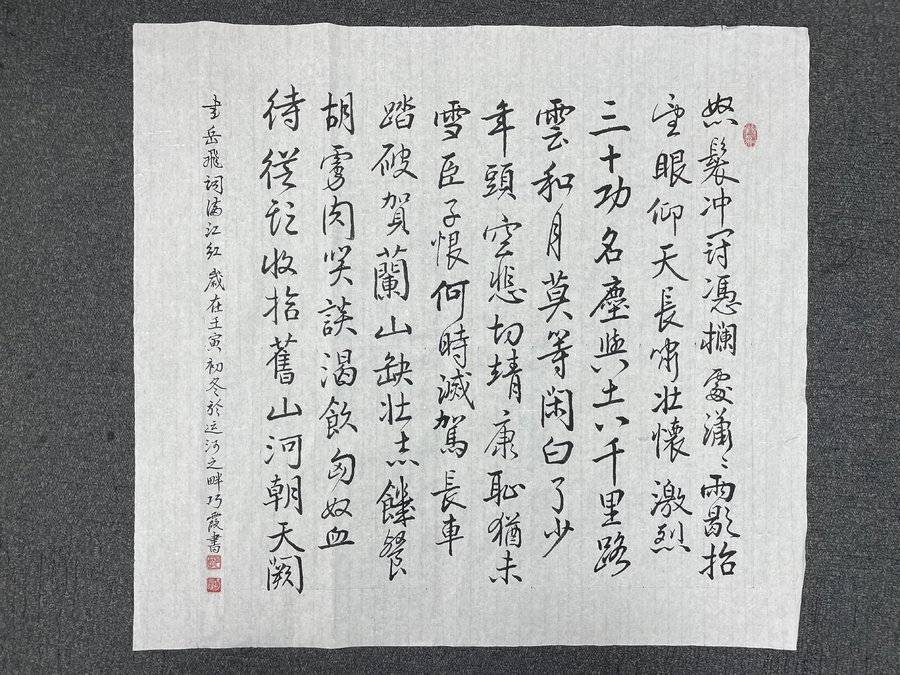 怒髮冲冠憑欄處瀟〻雨歇抬
望眼仰天長嘯壯懷激烈
三十功名塵與土八千里路
雲和月莫等閑白了少
年頭空悲切靖康恥猶未
雪臣子恨何時滅駕長車
踏破賀蘭山缺壯志饑餐
胡虜肉笑談渴飲匈奴血
待從頭收拾舊山河朝天闕
書岳飛詞滿江紅歲在壬寅初冬於运河之畔巧霞書